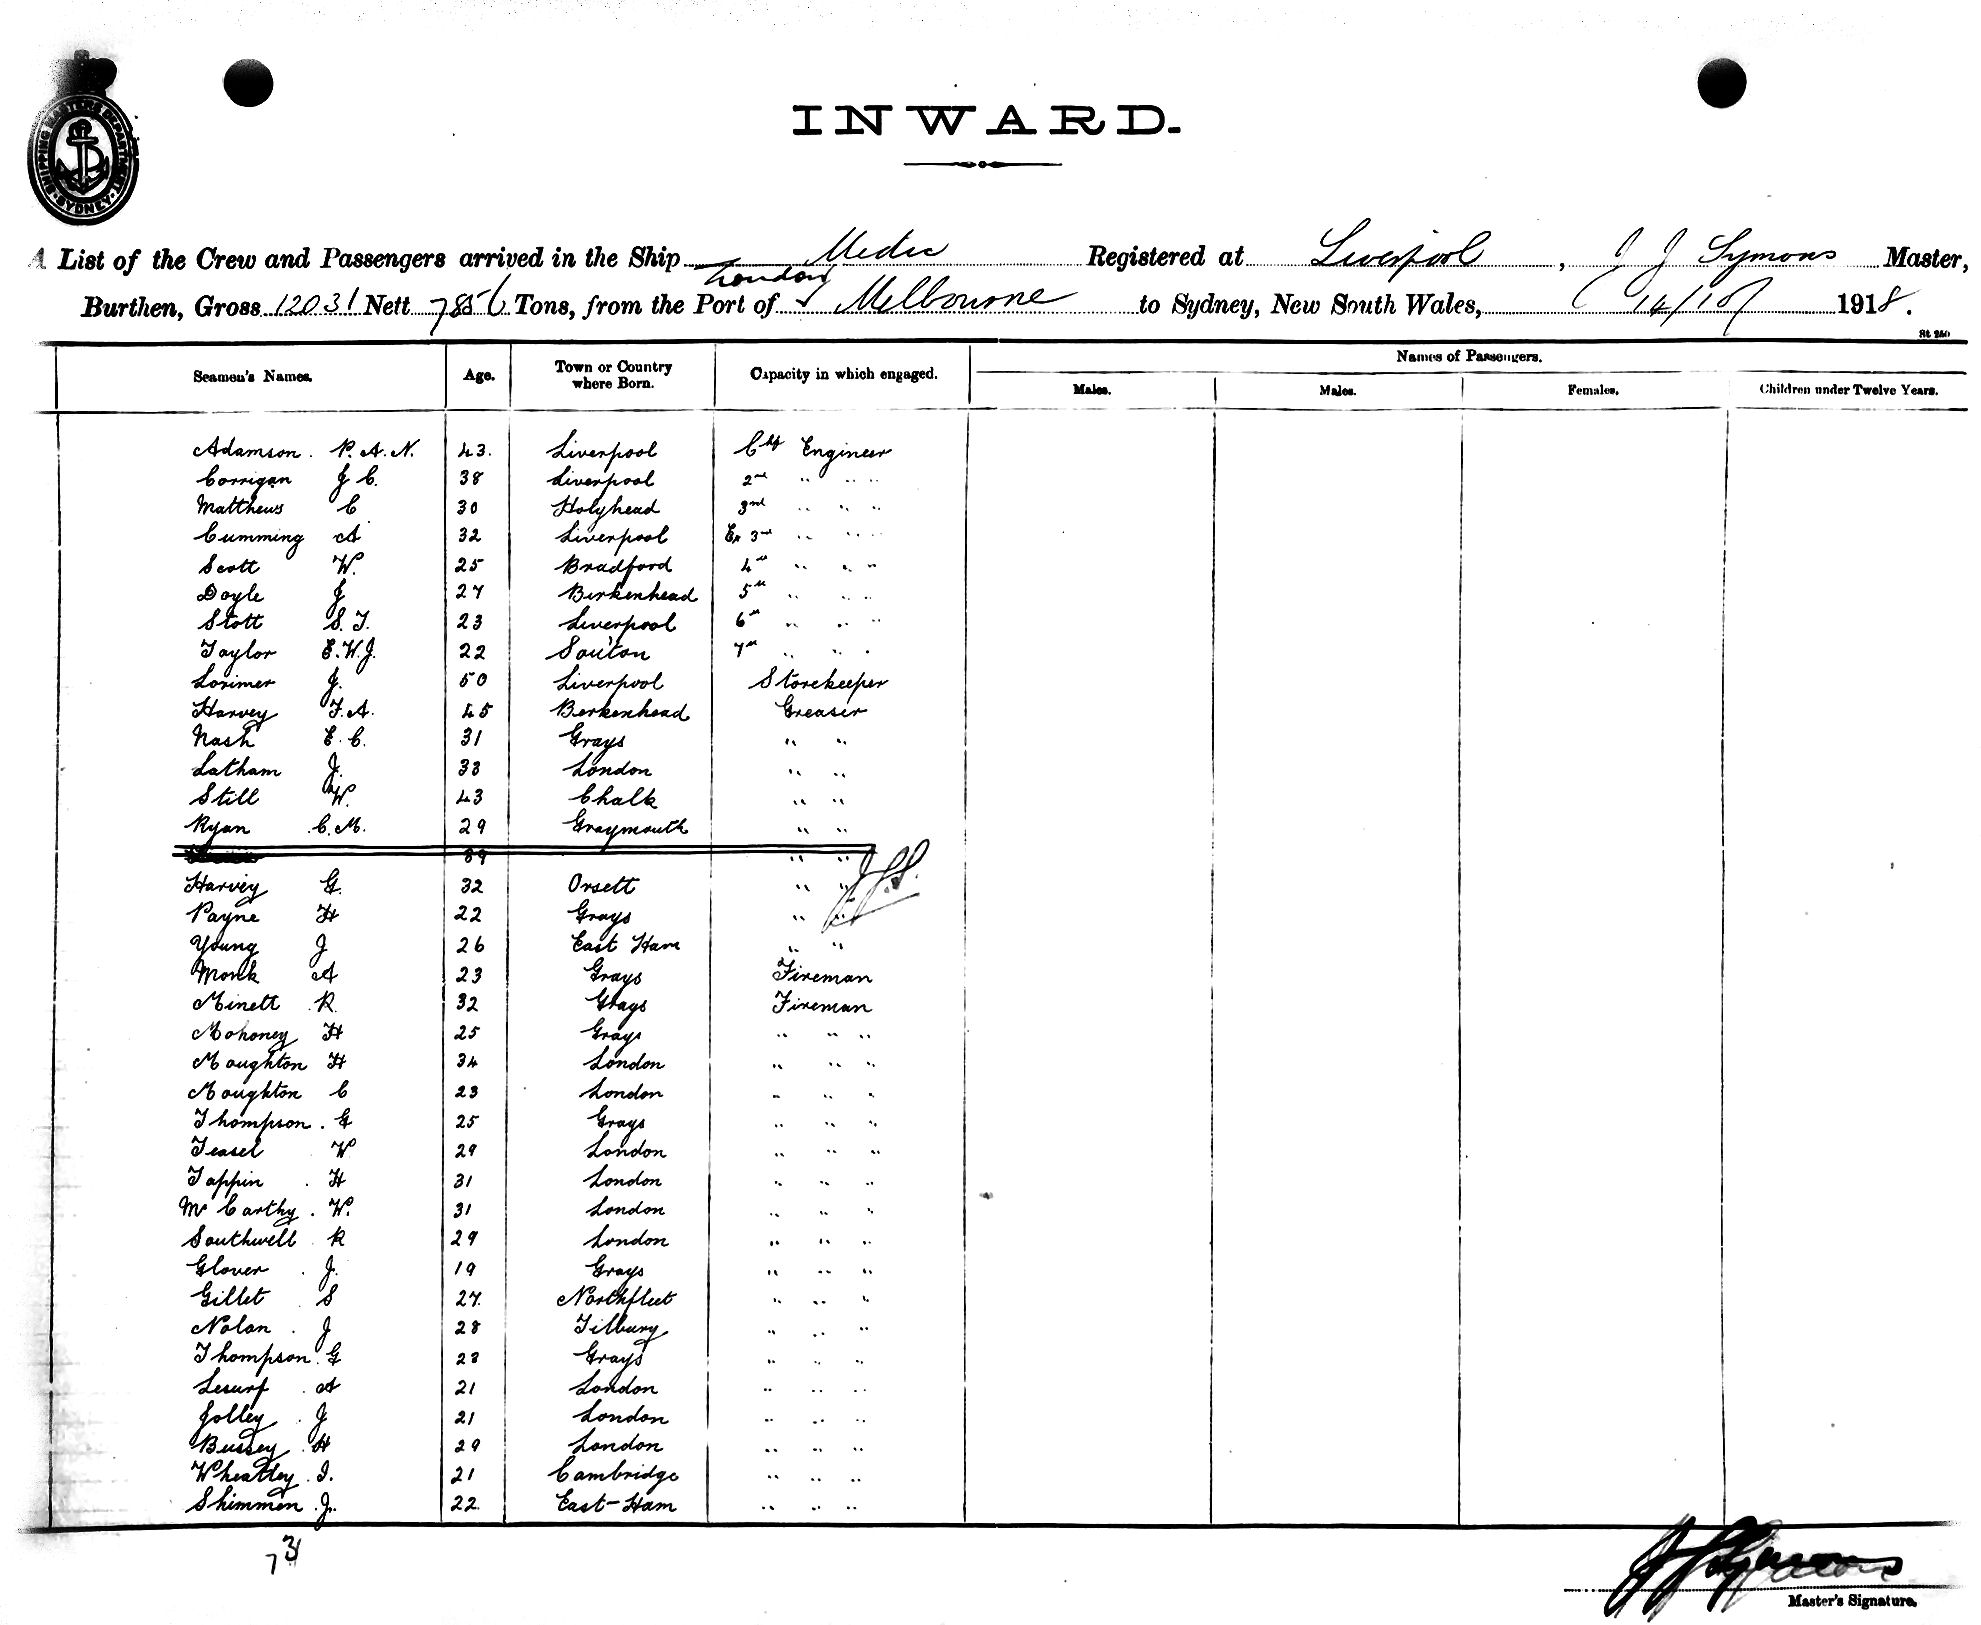 SHIPPING MASTERS DEPARTMENT SYDNEY
INWARD.
A List of the Crew and Passengers arrived in the Ship Medic Registered at Liverpool, J J Symons Master,
London
Burthen, Gross 12031 Nett 7856 Tons, from the Port of & Melbourne to Sydney, New South Wales, 14/10/ 1918.
St 250
Seamen's Names. Age. Town or Country where Born. Capacity in which engaged. Names of Passengers.
Males. Males. Females. Children under Twelve Years.
Adamson. P. A. N. 43. Liverpool Chf Engineer
Corrigan J C. 38 Liverpool 2nd " " "
Matthews C 30 Holyhead 3rd " " "
Cumming A 32 Liverpool Ex 3rd " " "
Scott W. 25 Bradford 4th " " "
Doyle J 27 Birkenhead 5th " " "
Stott S. T. 23 Liverpool 6th " " "
Taylor E. W. J. 22 So'ton 7th " " "
Lorimer J. 50 Liverpool Storekeeper
Harvey F. A. 45 Berkenhead Greaser
Nash E. C. 31 Grays " "
Latham J. 33 London " "
Still W. 43 Chalk " "
Ryan C. M. 29 Graymouth " "
39 " "
Harvey G. 32 Orsett " " J.J.S.
Payne H 22 Grays " "
Young J 26 East Ham " "
Monk A 23 Grays Fireman
Minett R. 32 Grays Fireman
Mohoney H 25 Grays " " "
Moughton H 34 London " " "
Moughton C 23 London " " "
Thompson. G 25 Grays " " "
Teasel W 29 London " " "
Tappin H 31 London " " "
Mc Carthy. W. 31 London " " "
Southwell R 29 London " " "
Glover J. 19 Grays " " "
Gillet S 27. Northfleet " " "
Nolan J 28 Tilbury " " "
Thompson. G 28 Grays " " "
Lesurf A 21 London " " "
Jolley J 21 London " " "
Bussey H 29 London " " "
Wheatley. I. 21 Cambridge " " "
Shimmen. J. 22. East-Ham " " "
73
J J Symons
Master's Signature.